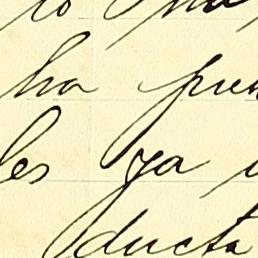 to
ha pue
les ya
ducta